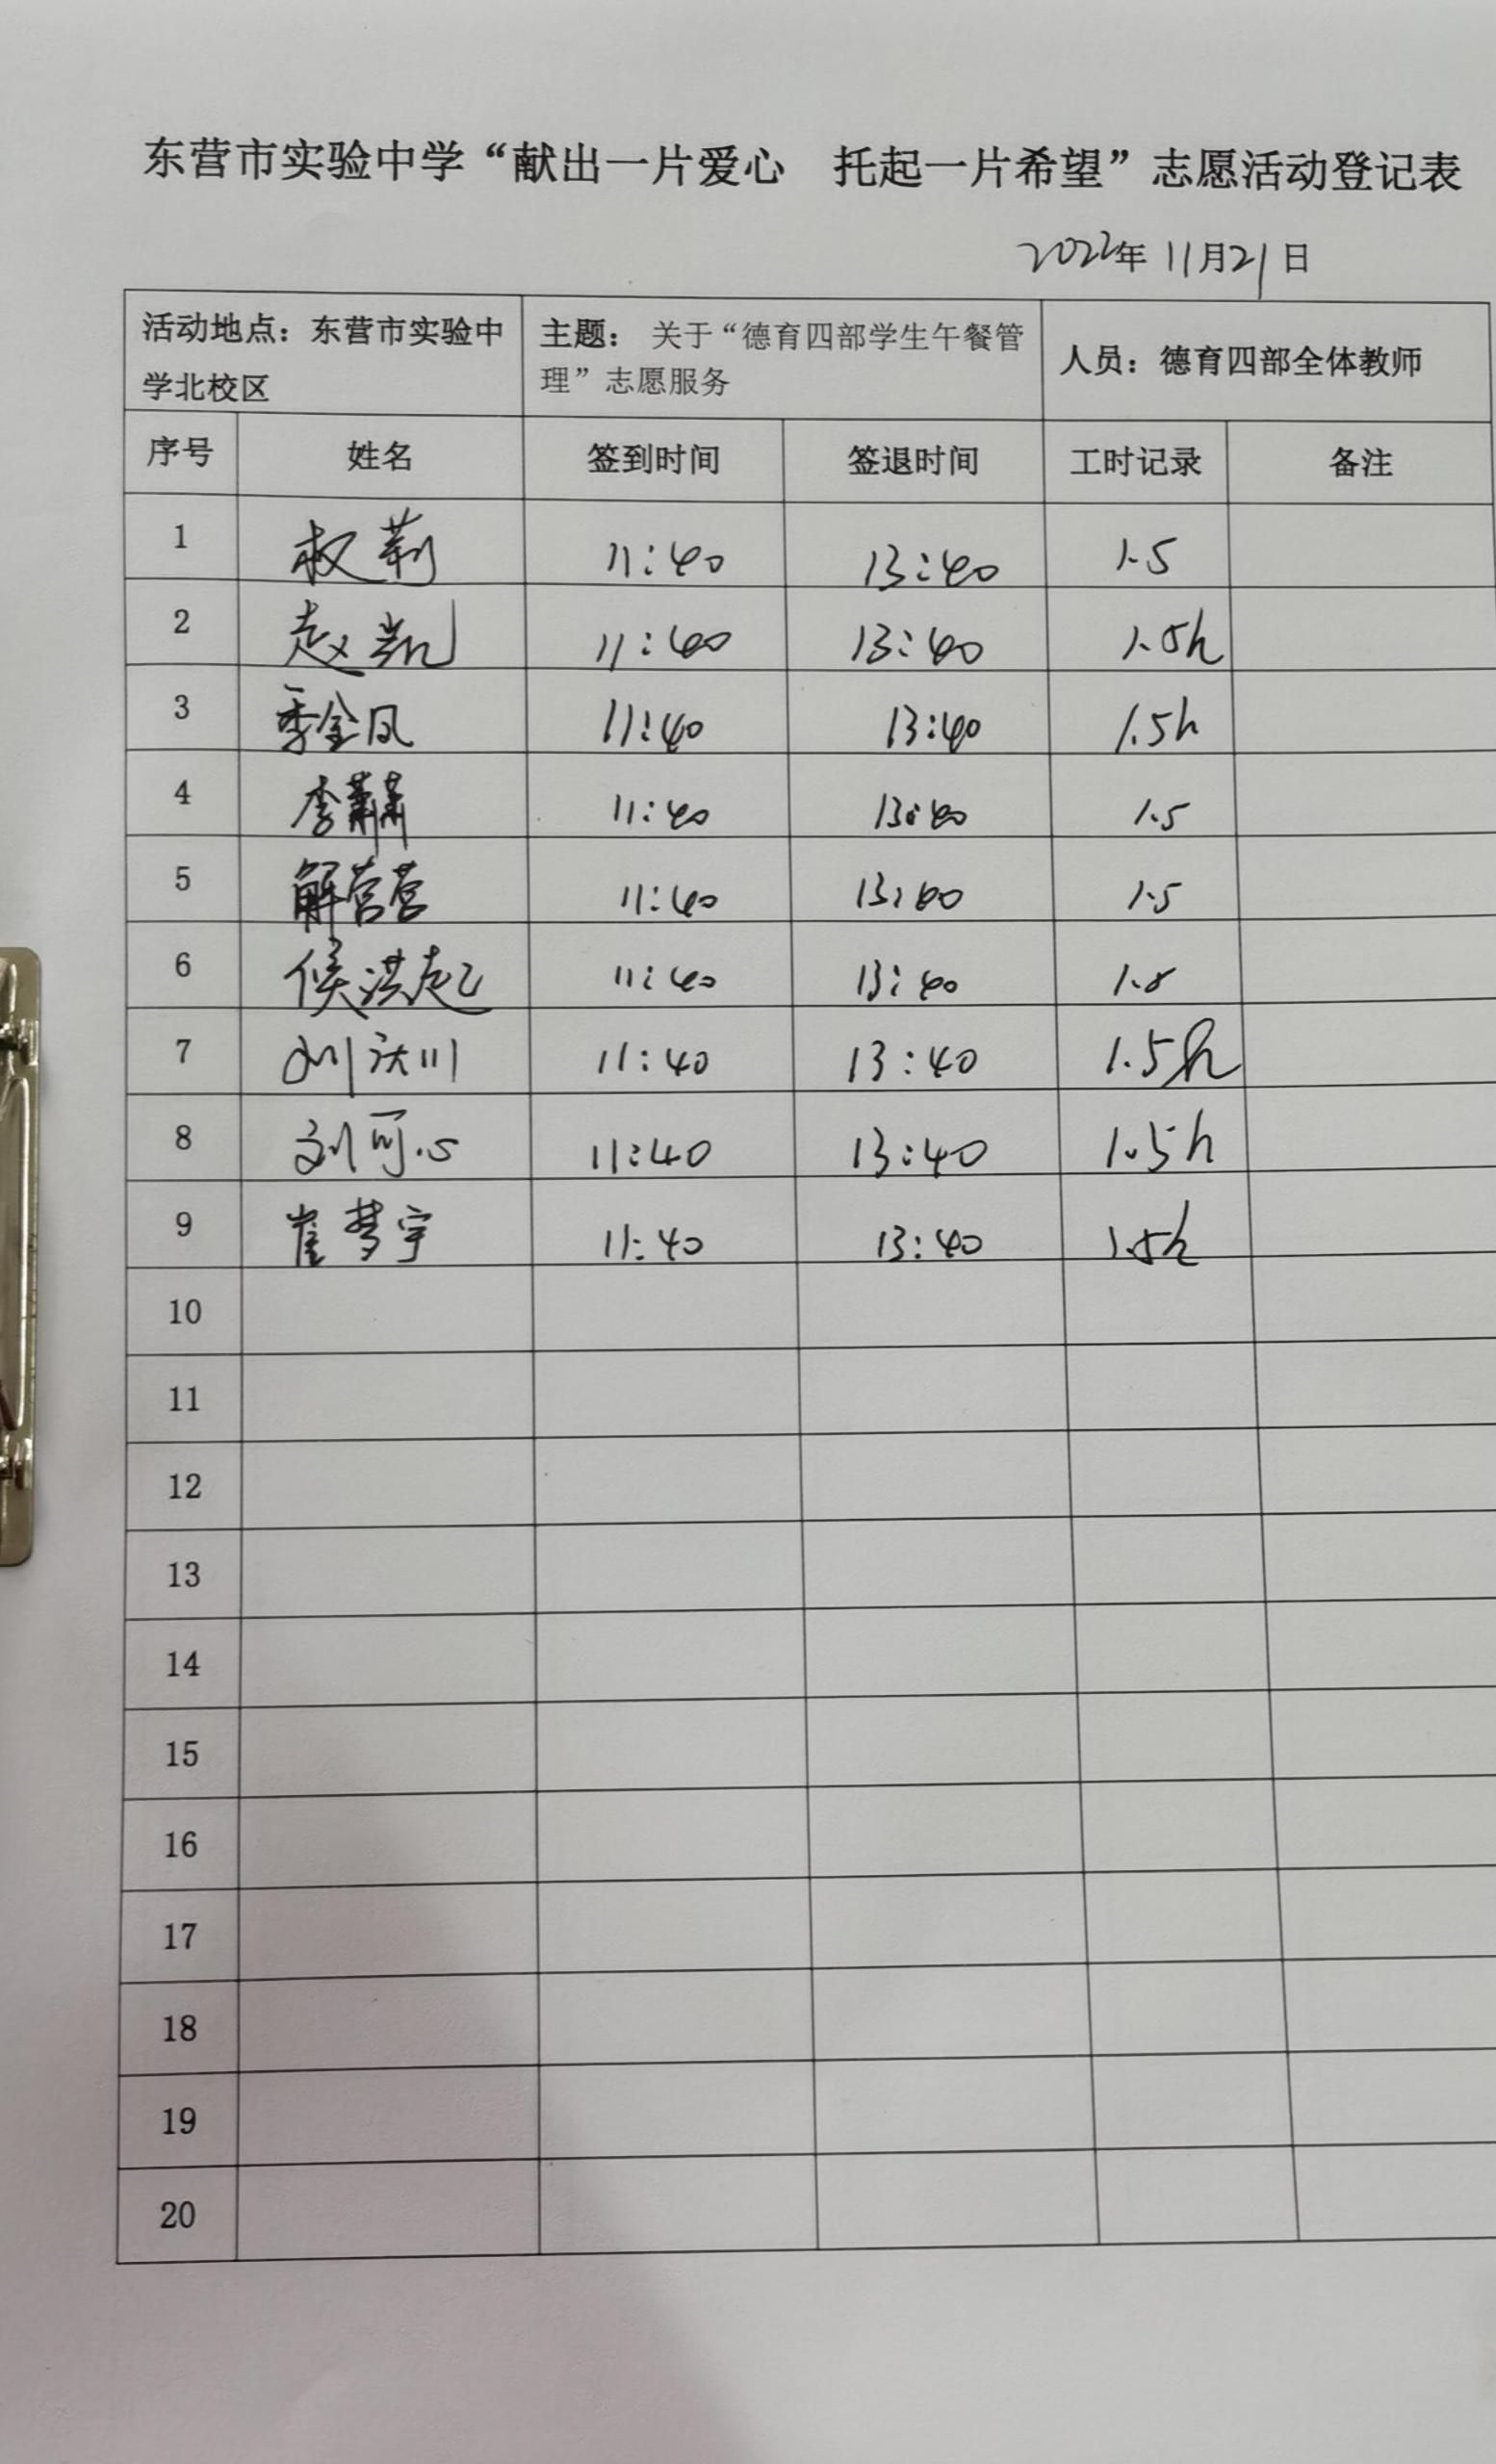 东营市实验中学“献出一片爱心 托起一片希望”志愿活动登记表
2022年11月21日
活动地点：东营市实验中
学北校区
主题： 关于“德育四部学生午餐管
理”志愿服务
人员：德育四部全体教师
序号 姓名 签到时间 签退时间 工时记录 备注
1 权莉 11:40 13:40 1.5
2 赵凯 11:40 13:40 1.5h
3 季金凤 11:40 13:40 1.5h
4 李潇潇 11:40 13:40 1.5
5 解营营 11:40 13:40 1.5
6 侯洪起 11:40 13:40 1.5
7 刘庆川 11:40 13:40 1.5h
8 刘可心 11:40 13:40 1.5h
9 崔梦宇 11:40 13:40 1.5h
10
11
12
13
14
15
16
17
18
19
20